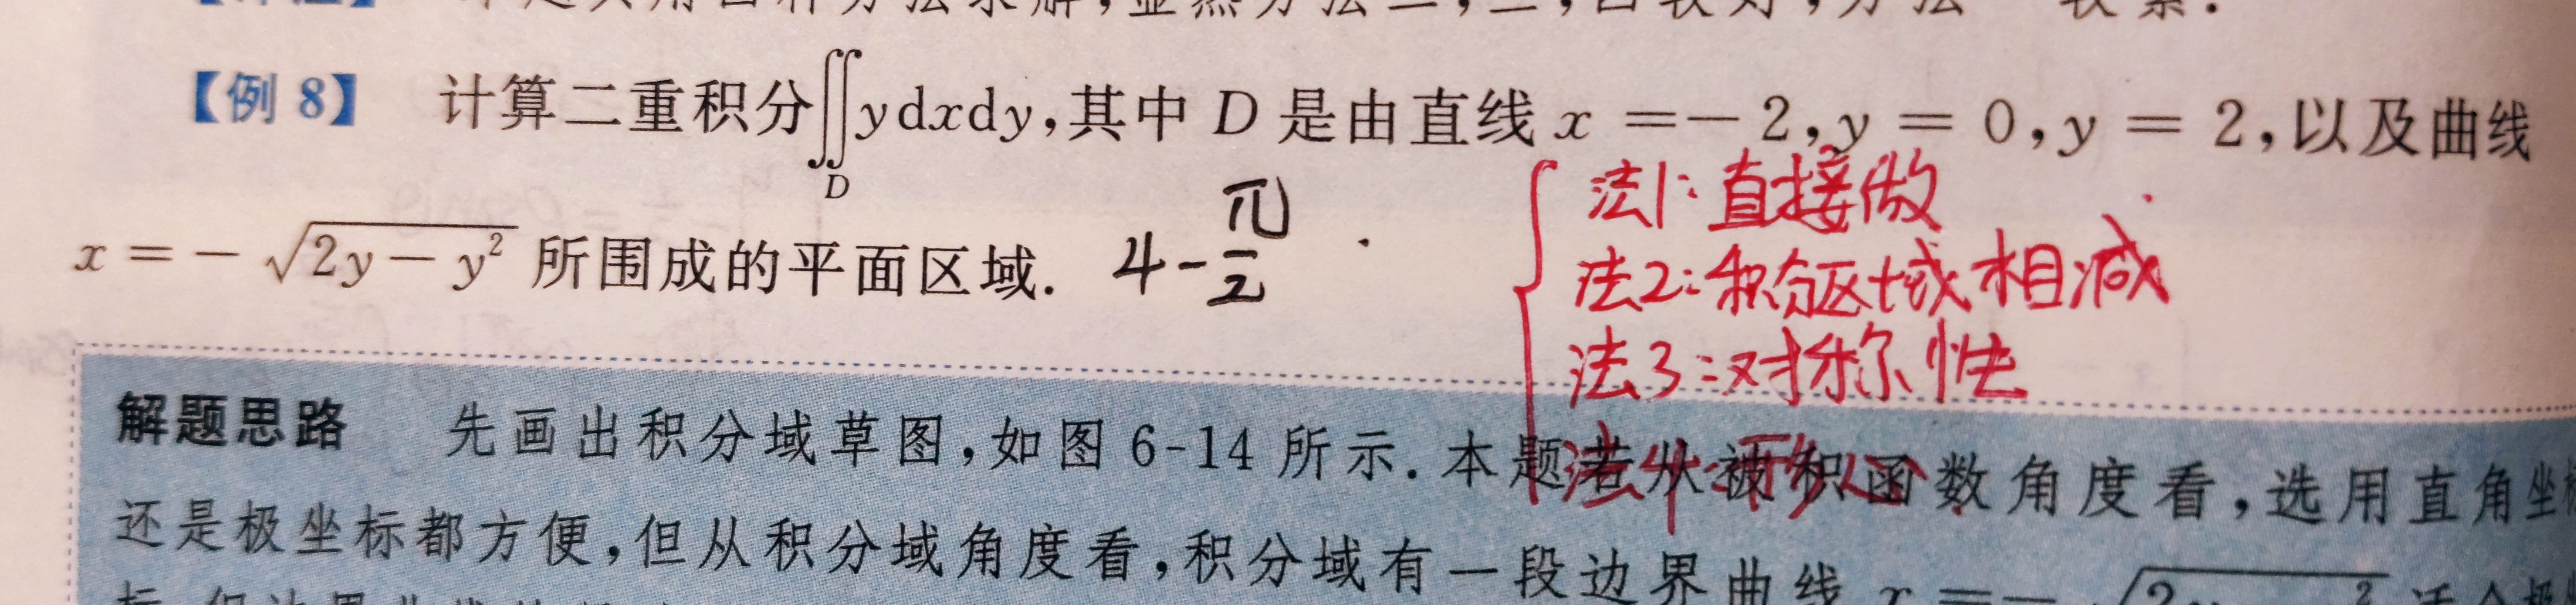 本题共用四种方法求解,显然方法二,三,四较好,方法一较繁.
【例 8】 计算二重积分∬_D ydxdy,其中 D 是由直线 x =- 2,y = 0,y = 2,以及曲线
x = - √(2y - y²) 所围成的平面区域. 4-π/2
法1:直接做
法2:积分区域相减
法3:对称性
解题思路 先画出积分域草图,如图 6-14 所示.本题若从被积函数角度看,选用直角坐
法4:
还是极坐标都方便,但从积分域角度看,积分域有一段边界曲线 x =-